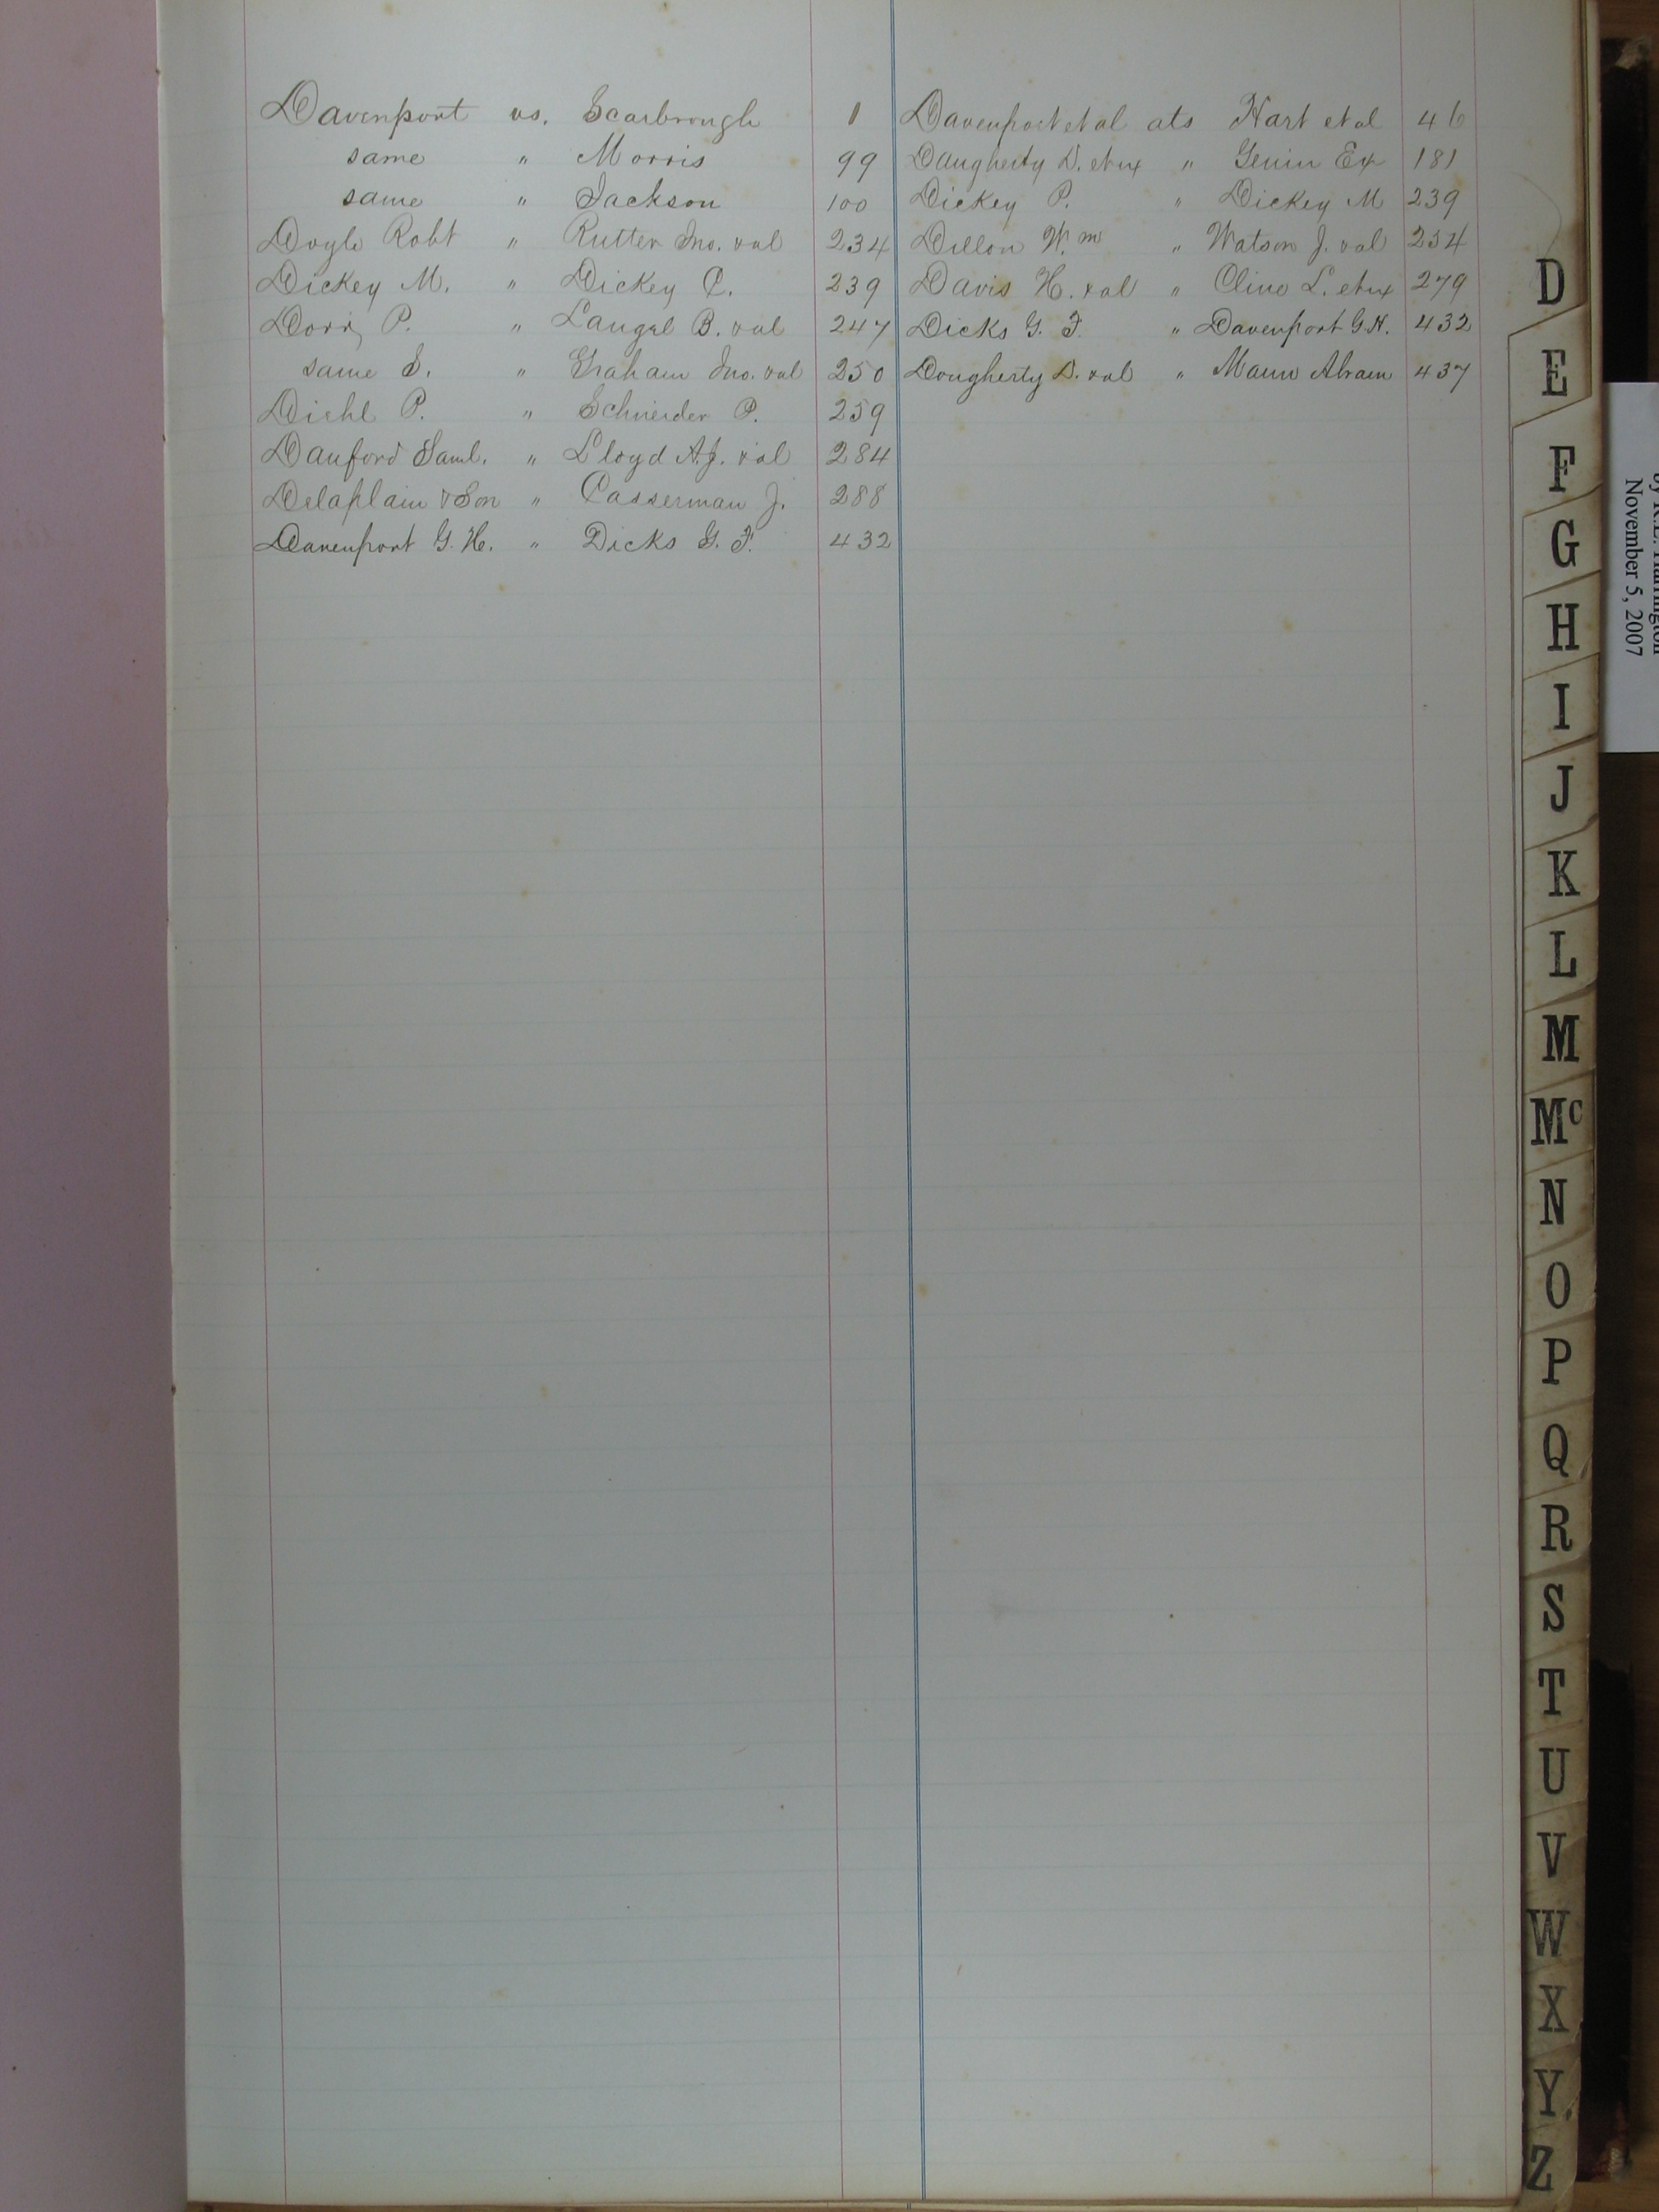 Davenport vs. Scarbrough 1
same " Morris 99
same " Jackson 100
Doyle Robt " Rutter Jno. &al 234
Dickey M. " Dickey P. 239
Dorr P. " Langel B. &al 247
same S. " Graham Jno. &al 250
Diehl P. " Schneider P. 259
Danford Saml. " Lloyd A.J. &al 284
Delaplain & Son " Casserman J. 288
Davenport G. H. " Dicks G. F. 432
Davenport et al ats Hart et al 46
Daugherty D. et ux " Genin Ex 181
Dickey P. " Dickey M 239
Dillon Wm " Watson J. &al 254
Davis H. &al " Cline L. et ux 279
Dicks G. F. " Davenport G.H. 432
Dougherty D. &al " Mann Abram 437
D
E
F
G
H
I
J
K
L
M
Mc
N
O
P
Q
R
S
T
U
V
W
X
Y.
Z
November 5, 2007